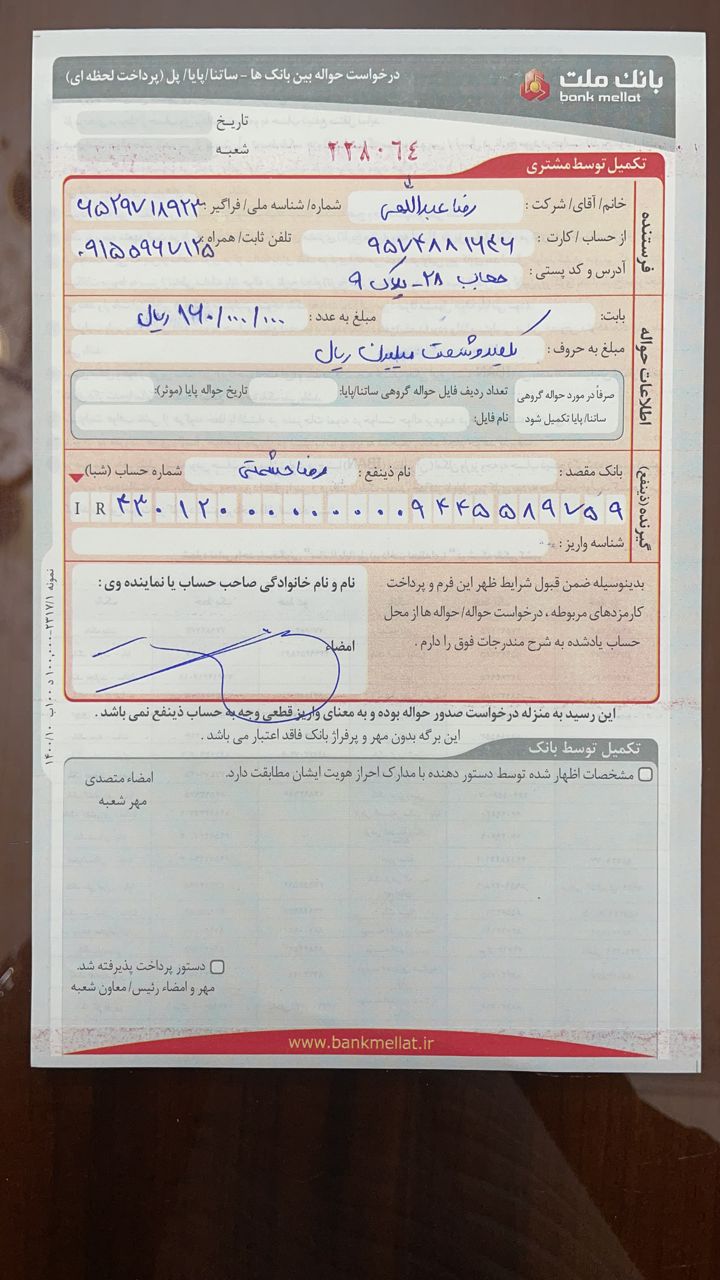 بانک ملت
bank mellat
درخواست حواله بین بانک ها - ساتنا/پایا/ پل (پرداخت لحظه ای)
تاریخ
شعبه :
۲۲۸۰۶۴
تکمیل توسط مشتری
فرستنده
خانم/ آقای/ شرکت : رضا عبداللهی شماره/ شناسه ملی/ فراگیر : ۶۵۲۹۷۱۸۹۲۳
از حساب / کارت : ۹۵۷۴۸۸۱۶۴۶ تلفن ثابت/ همراه : ۰۹۱۵۵۹۶۷۱۲۵
آدرس و کد پستی : ۲۸- پلاک ۹
اطلاعات حواله
بابت: مبلغ به عدد : ۱۶۰/۰۰۰/۰۰۰ ریال
مبلغ به حروف : یکصد و شصت میلیون ریال
صرفاً در مورد حواله گروهی ساتنا/پایا تکمیل شود
تعداد ردیف فایل حواله گروهی ساتنا/پایا: تاریخ حواله پایا (موثر):
نام فایل:
گیرنده (ذینفع)
بانک مقصد : نام ذینفع : رضا حشمتی شماره حساب (شبا)
IR ۴۳۰۱۲۰۰۰۰۰۰۰۰۰۰۹۴۴۵۵۸۹۷۵۹
شناسه واریز :
بدینوسیله ضمن قبول شرایط ظهر این فرم و پرداخت
کارمزدهای مربوطه ، درخواست حواله/ حواله ها از محل
حساب یادشده به شرح مندرجات فوق را دارم .
نام و نام خانوادگی صاحب حساب یا نماینده وی :
امضاء
این رسید به منزله درخواست صدور حواله بوده و به معنای واریز قطعی وجه به حساب ذینفع نمی باشد .
این برگه بدون مهر و پرفراژ بانک فاقد اعتبار می باشد .
نمونه ۲۳۱۷/۱-۱۰۰,۰۰۰ د ۱۰۰ب ۱۴۰۰/۱۰
تکمیل توسط بانک
مشخصات اظهار شده توسط دستور دهنده با مدارک احراز هویت ایشان مطابقت دارد.
امضاء متصدی
مهر شعبه
دستور پرداخت پذیرفته شد.
مهر و امضاء رئیس/ معاون شعبه
www.bankmellat.ir